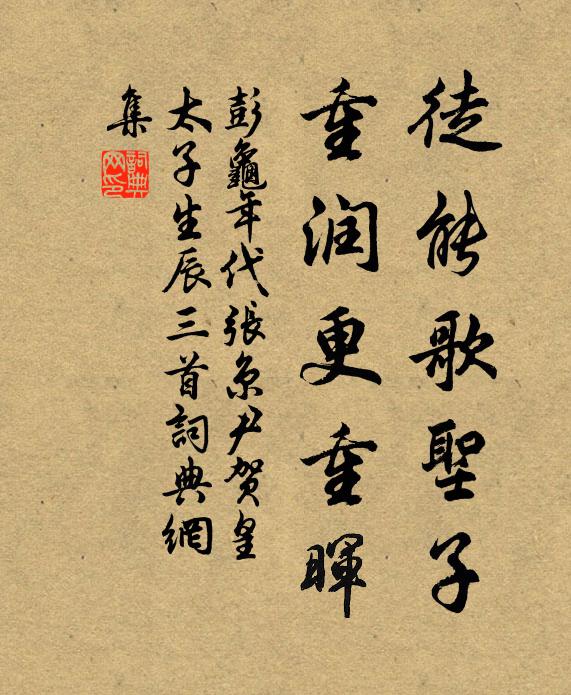 徒能歌聖子
重润更重暉
彭龜年代張京尹贺皇
太子生辰三首詞典網
集
詞典
网印